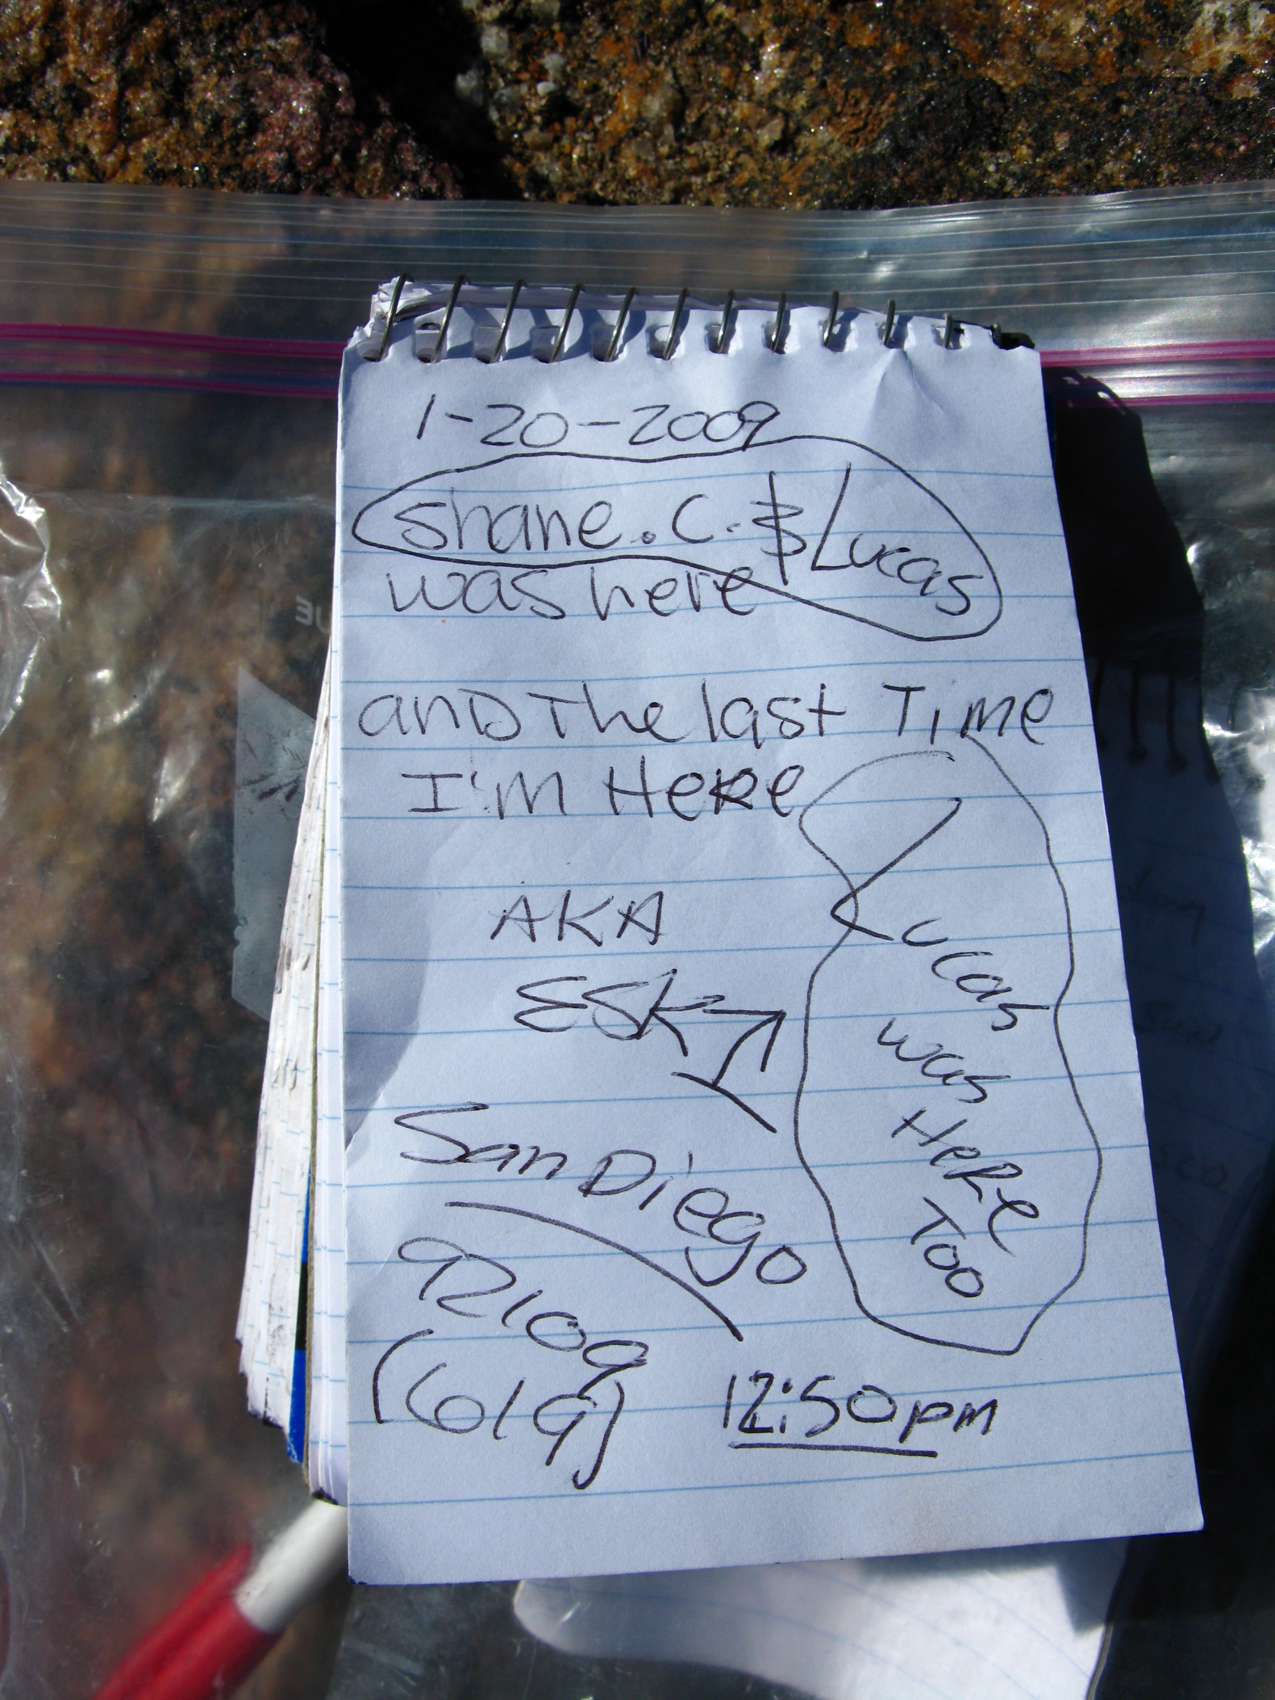 1-20-2009
shane. C. & Lucas
was here
anD The last Time
I'm HeRe
AKA
ESK
San Diego
92109
(619)
12:50pm
Lucas
was
HeRe
Too